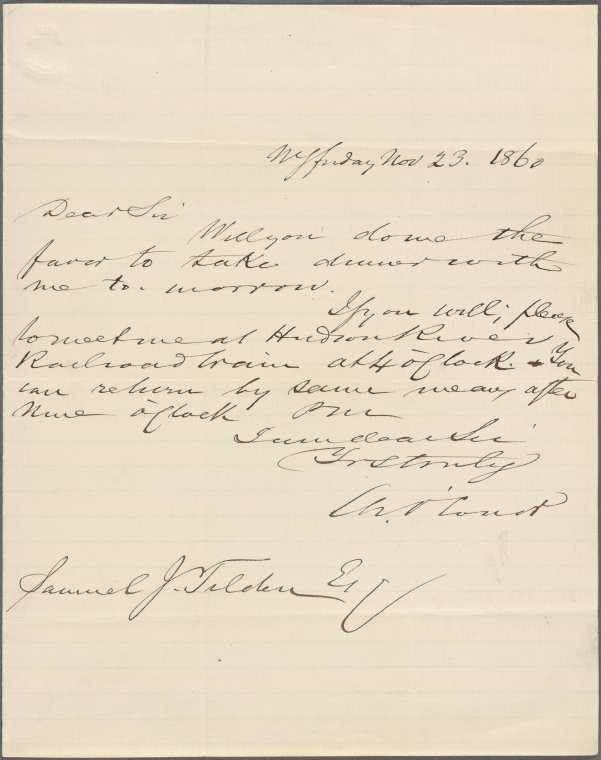 NY friday Nov 23. 1860
Dear Sir
Will you do me the
favor to take dinner with
me to-morrow.
If you will, please
to meet me at Hudson River
Railroad train at 4 o'Clock. You
can return by same means after
Nine o'Clock PM
I am dear Sir
Yrs truly
Ch. O'Conor
Samuel J. Tilden Esq